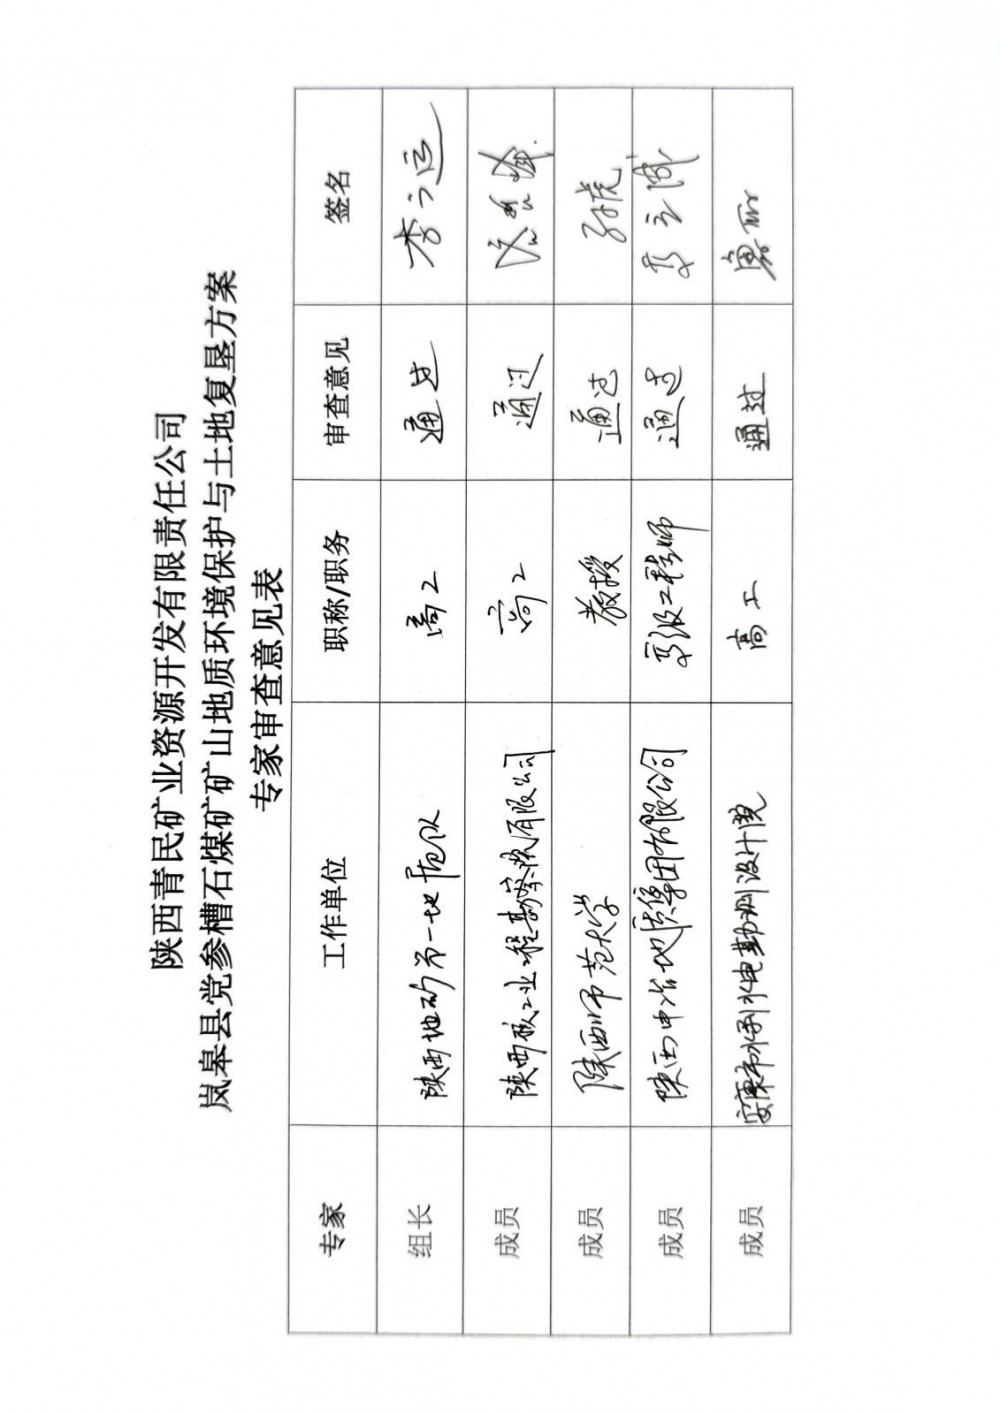 陕西青民矿业资源开发有限责任公司
岚皋县党参槽石煤矿矿山地质环境保护与土地复垦方案
专家审查意见表
专家 工作单位 职称/职务 审查意见 签名
组长 陕西地矿第一地质队 高工 通过 李
成员 陕西核工业工程勘察院有限公司 高工 通过
成员 陕西师范大学 教授 通过 孙虎
成员 陕西中冶地质集团有限公司 工程师 通过
成员 安康市水利水电勘测设计院 高工 通过